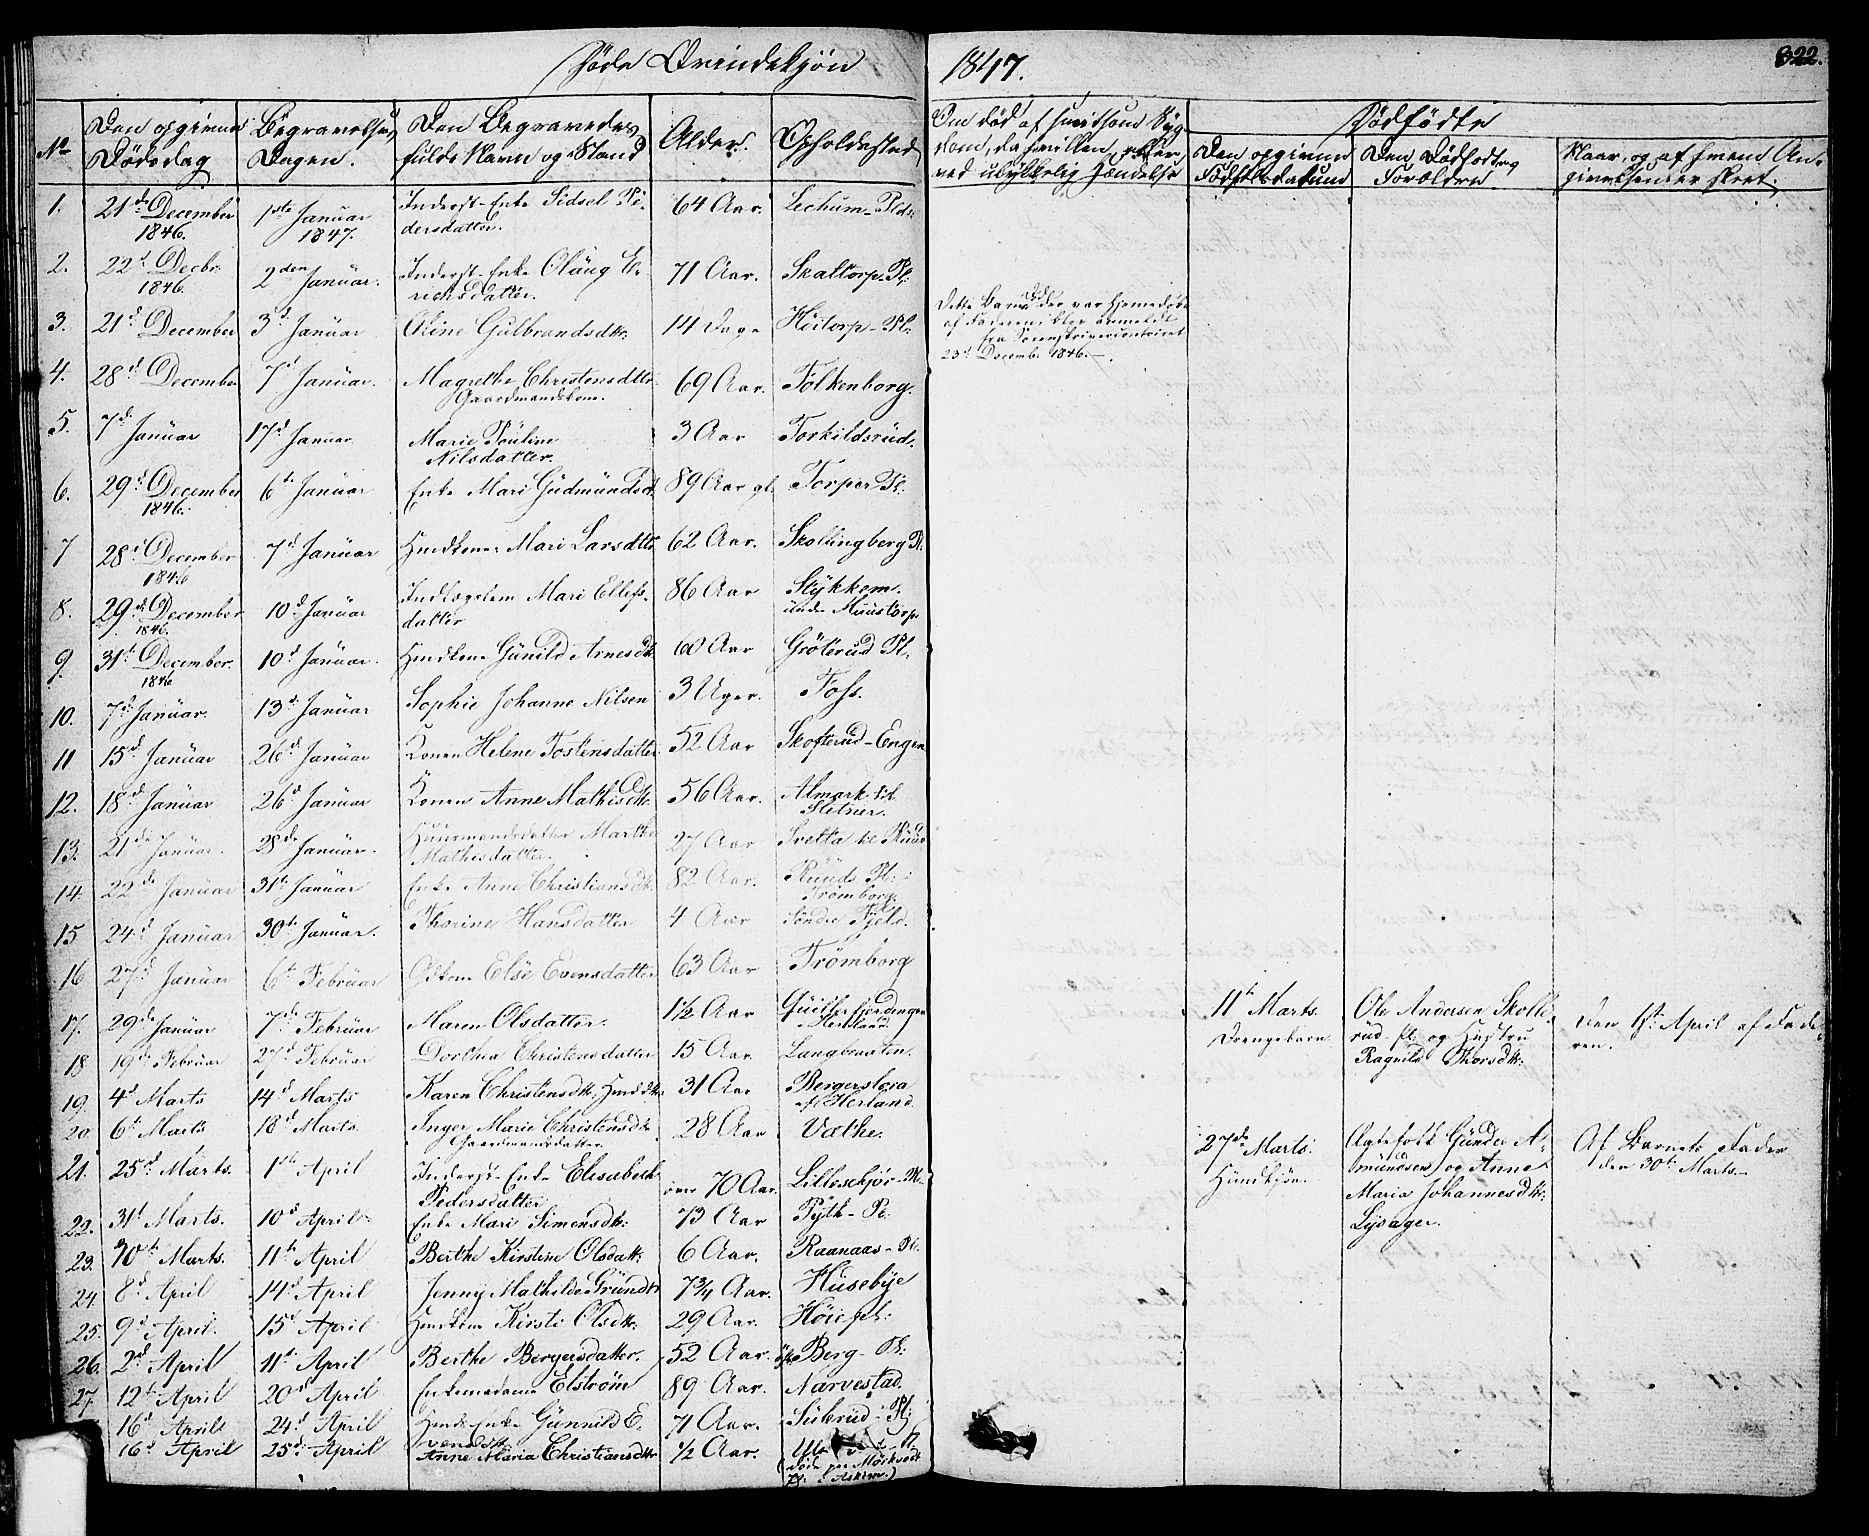 Døde Qvindekjøn
1847.
322.
No
Den opgivne Dødsdag
Begravelses Dagen.
Den Begravedes fulde Navn og Stand
Alder.
Opholdssted
Om død af smitsom Syg-
dom, da hvilken, eller
ved ulykkelig Hændelse
Dødfødte
Den opgivne Fødselsdatum
Den Dødfødtes Forældre
Naar, og af hvem An-
givelsen er skeet.
1. 21de December 1846. 1ste Januar 1847. Inderst-Enke Sidsel Pe-
dersdatter. 64 Aar.
2. 22d Decbr. 1846. 2den Januar. Inderst-Enke Olaug E-
richsdatter. 71 Aar. Skattorp-Pl:
3. 21d December 3d Januar Oline Gulbrandsdtr. 14 Dage Høitorp-Pl:
Dette Barns Død, der var hjemmedøbt
af Faderen, blev anmeldt
fra Sorenskrivercontoiret
23d December 1846.
4. 28d December 7d Januar. Magrethe Christensdttr.
Gaardmandskone. 69 Aar. Folkenborg.
5. 7de Januar 17d Januar Marie Pouline
Nilsdatter. 3 Aar Torkildsrud.
6. 29d December 1846. 6te Januar Enke Mari Gudmundsd. 89 Aar gl. Torper Pl:
7 28d December 1846 7d Januar Huusmandskone Mari Larsdttr. 62 Aar. Skollingberg Pl.
8. 29d December 1846. 10d Januar Indlægslem Mari Ellefs-
datter 86 Aar Stykkem.
under Muustorp
9. 31te December. 1846 10d Januar. Gunild Arnesdtr. 60 Aar Gröterud Pl.
10. 7de Januar. 13d Januar Sophie Johanne Nilsen 3 Uger. Foss.
11 15d Januar 26d Januar Konen Helene Tostensdatter 52 Aar Skofterud-Engen
12. 18d Januar 26d Januar Konen Anne Mathisdtr. 56 Aar. Almark til
Sletner.
13. 21de Januar. 28de Januar. Huusmandsdatter Marthe
Mathisdatter. 27 Aar Sletta til Ruud
14. 22de Januar 31te Januar Enke Anne Christiansdtr. 82 Aar. Ruuds Pl:
Trömborg.
15 24d Januar 30te Januar. Thorine Hansdatter 4 Aar Söndre Fjeld.
16 27d Januar 6te Februar Else Evensdatter 63 Aar Trömborg
17. 29de Januar 7de Februar Maren Olsdatter. 1½ Aar
11te Marts.
Drengebarn.
Ole Andersen Skolle-
rud Pl. og Hustru
Ragnild Thorsdtr:
Den 1ste April af Fade-
ren.
18 19de Februar 27d Februar Dorthea Christensdatter 15 Aar. Langbraaten.
19. 4d Marts 14d Marts Karen Christensdtr. 31 Aar Bergersløsa
af Herland.
20. 6te Marts 18d Marts. Inger Marie Christensdtr.
Gaardmandsdatter. 28 Aar Vathe.
27de Marts.
Hunkjøn.
Ægtefolk Gunder A-
mundsen og Anne
Maria Johannesdtr:
Lysager.
Af Barnets Fader
den 30te Marts.
21. 25d Marts. 1ste April Inderst-Enke Elisabeth
Pedersdatter over 70 Aar.
22. 31te Marts. 10d April Enke Mari Simensdtr: 73 Aar
23. 10te Marts. 11te April Berthe Kirstine Olsdatt: 6 Aar. Raanaas-Pl.
24. 8d April 14d April Jenny Mathilde Gründt 7¾ Aar. Husebye
25. 9d April. 15d April Kirsti Olsdtr. 29 Aar. Høie pl:
26. 2d April 11te April Berthe Bergersdatter. 52 Aar. Berg-Pl:
27. 12te April 20d April Enkemadame Elström 89 Aar. Narvestad.
16d April 24d April Enke Gunnild E-
vensdtr. 71 Aar. Suterud-Pl:
16d April 25d April Anne Maria Christiansdtr ½ Aar.